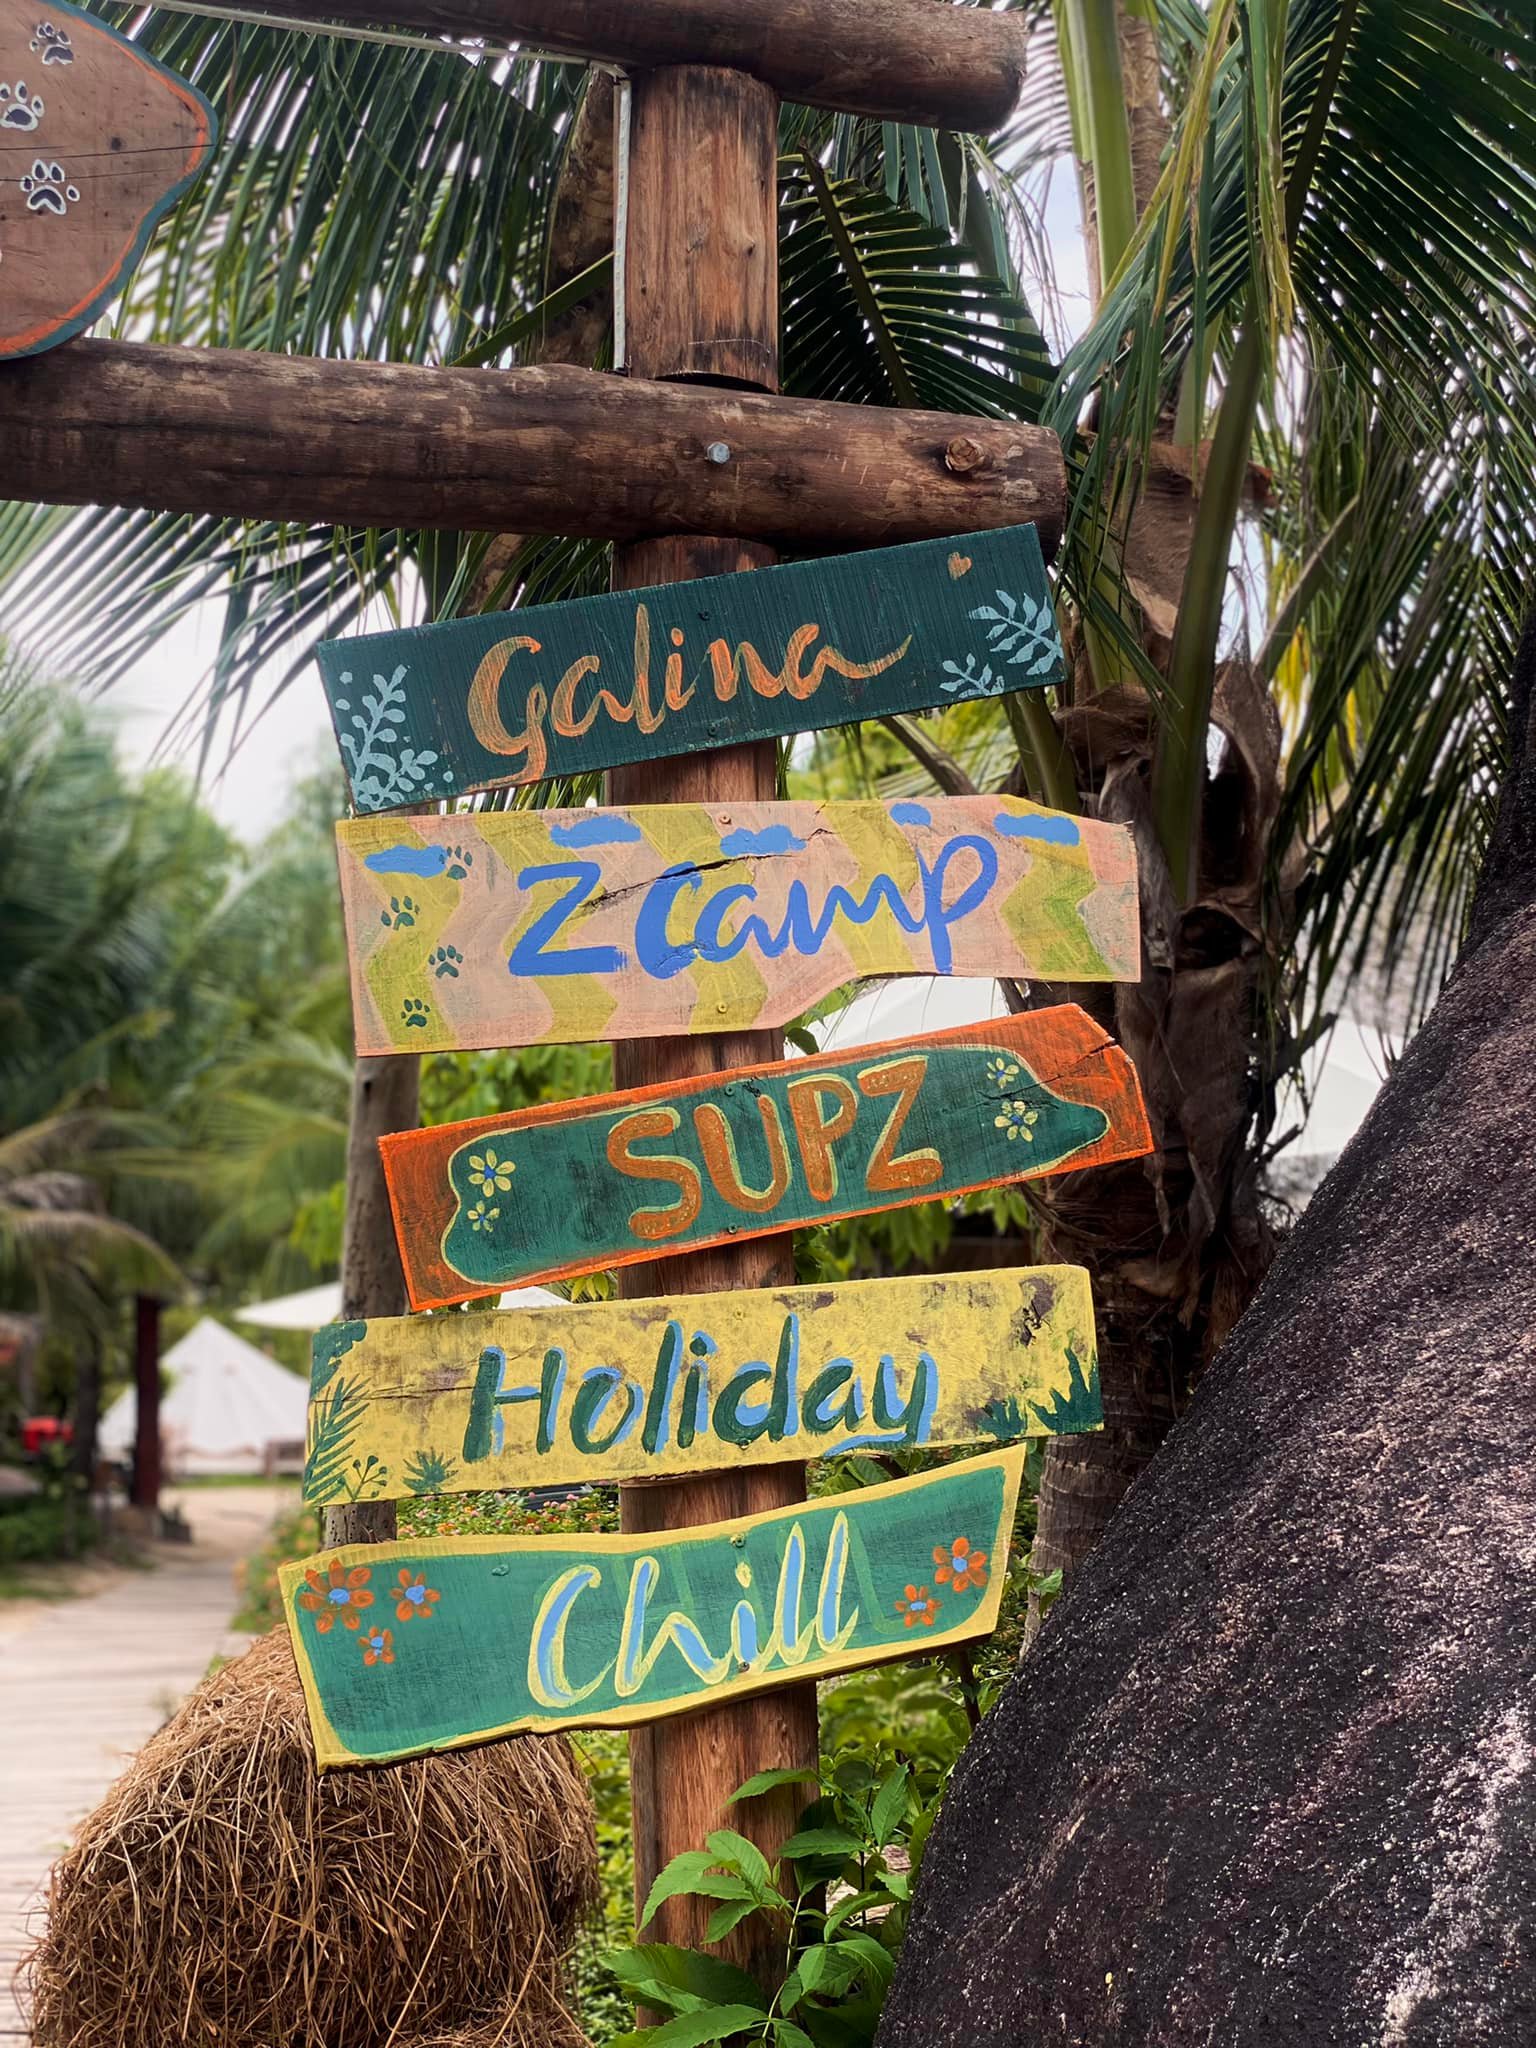 Galina
Z camp
SUPZ
Holiday
Chill